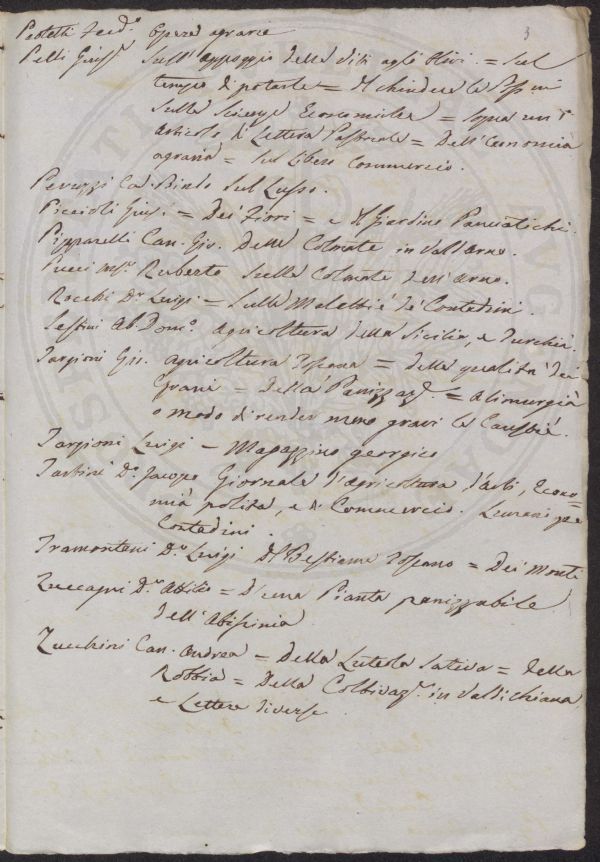 3
Paoletti Ferd.º Opere agrarie
Pelli Gius.e Sull'appoggio delle Viti agli Olivi = Sul
tempo di potarle = Il chiudere le Poss.ni
Sulle Scienze Economiche = Sopra un
articolo di Lettera Pastorale = Dell'Economia
agraria = Sul libero Commercio.
Peruzzi Ca. Bindo Sul Lusso.
Piccioli Gius. = Dei Fiori = e Il Giardino Panciatichi.
Pizzarelli Can. Gio. Delle Colmate in Valdarno.
Pucci Ruberto Sulle Colmate dell'Arno.
Rocchi Dr. Luigi = Sulle Malattie de' Contadini.
Sestini Ab. Dom.º Agricoltura della Sicilia, e Turchia.
Targioni Gio. Agricoltura Toscana = della qualità dei
Grani = Della Panizzaz.e = Alimurgia
o modo di render meno gravi le Carestie.
Targioni Luigi – Magazzino georgico
Tartini Dr. Jacopo Giornale d'agricoltura d'arti, Econo=
mia politca, e di Commercio. Lunari pe
Contadini.
Tramontani Dr. Luigi Bestiame Toscano = Dei Monti
Zuccagni Dr. Attilio = D'una Pianta panizzabile
dell'Abissinia.
Zucchini Can. Andrea – Della Luteola Sativa = della
Robbia = Della Coltivaz.e in Valdichiana
e Lettere diverse.